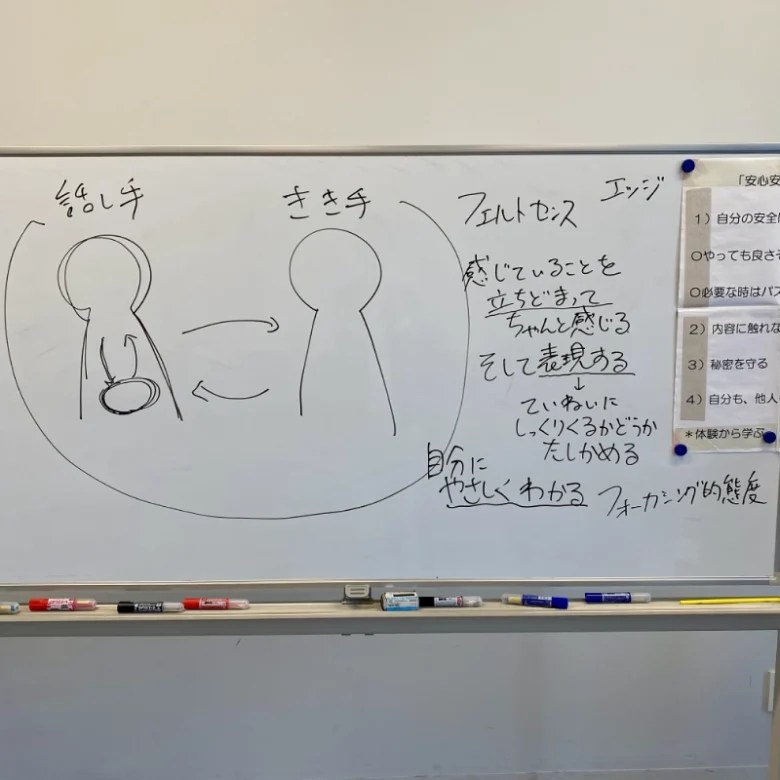 話し手
きき手
フェルトセンス
エッジ
感じていることを
立ちどまって
ちゃんと感じる
そして表現する
↓
ていねいに
しっくりくるかどうか
たしかめる
自分に
やさしくわかる
フォーカシング的態度
「安心安
1）自分の安全
○やっても良さそ
○必要な時はパス
2）内容に触れな
3）秘密を守る
4）自分も、他人
＊体験から学ぶ